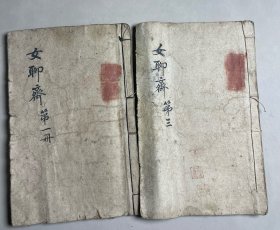 女聊齋 第一册
女聊齋 第三